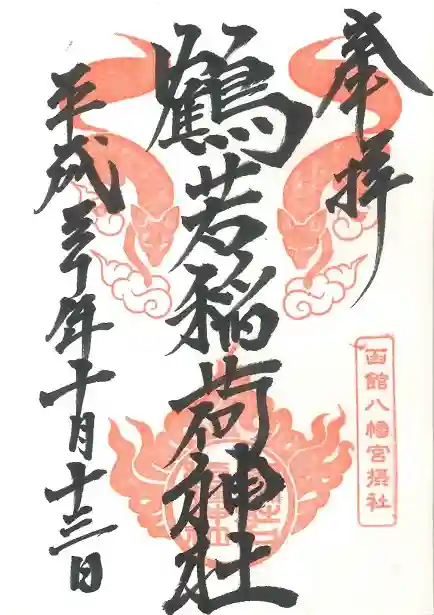 奉拝
函館八幡宮攝社
鶴若稲荷神社
平成三十年十月十三日